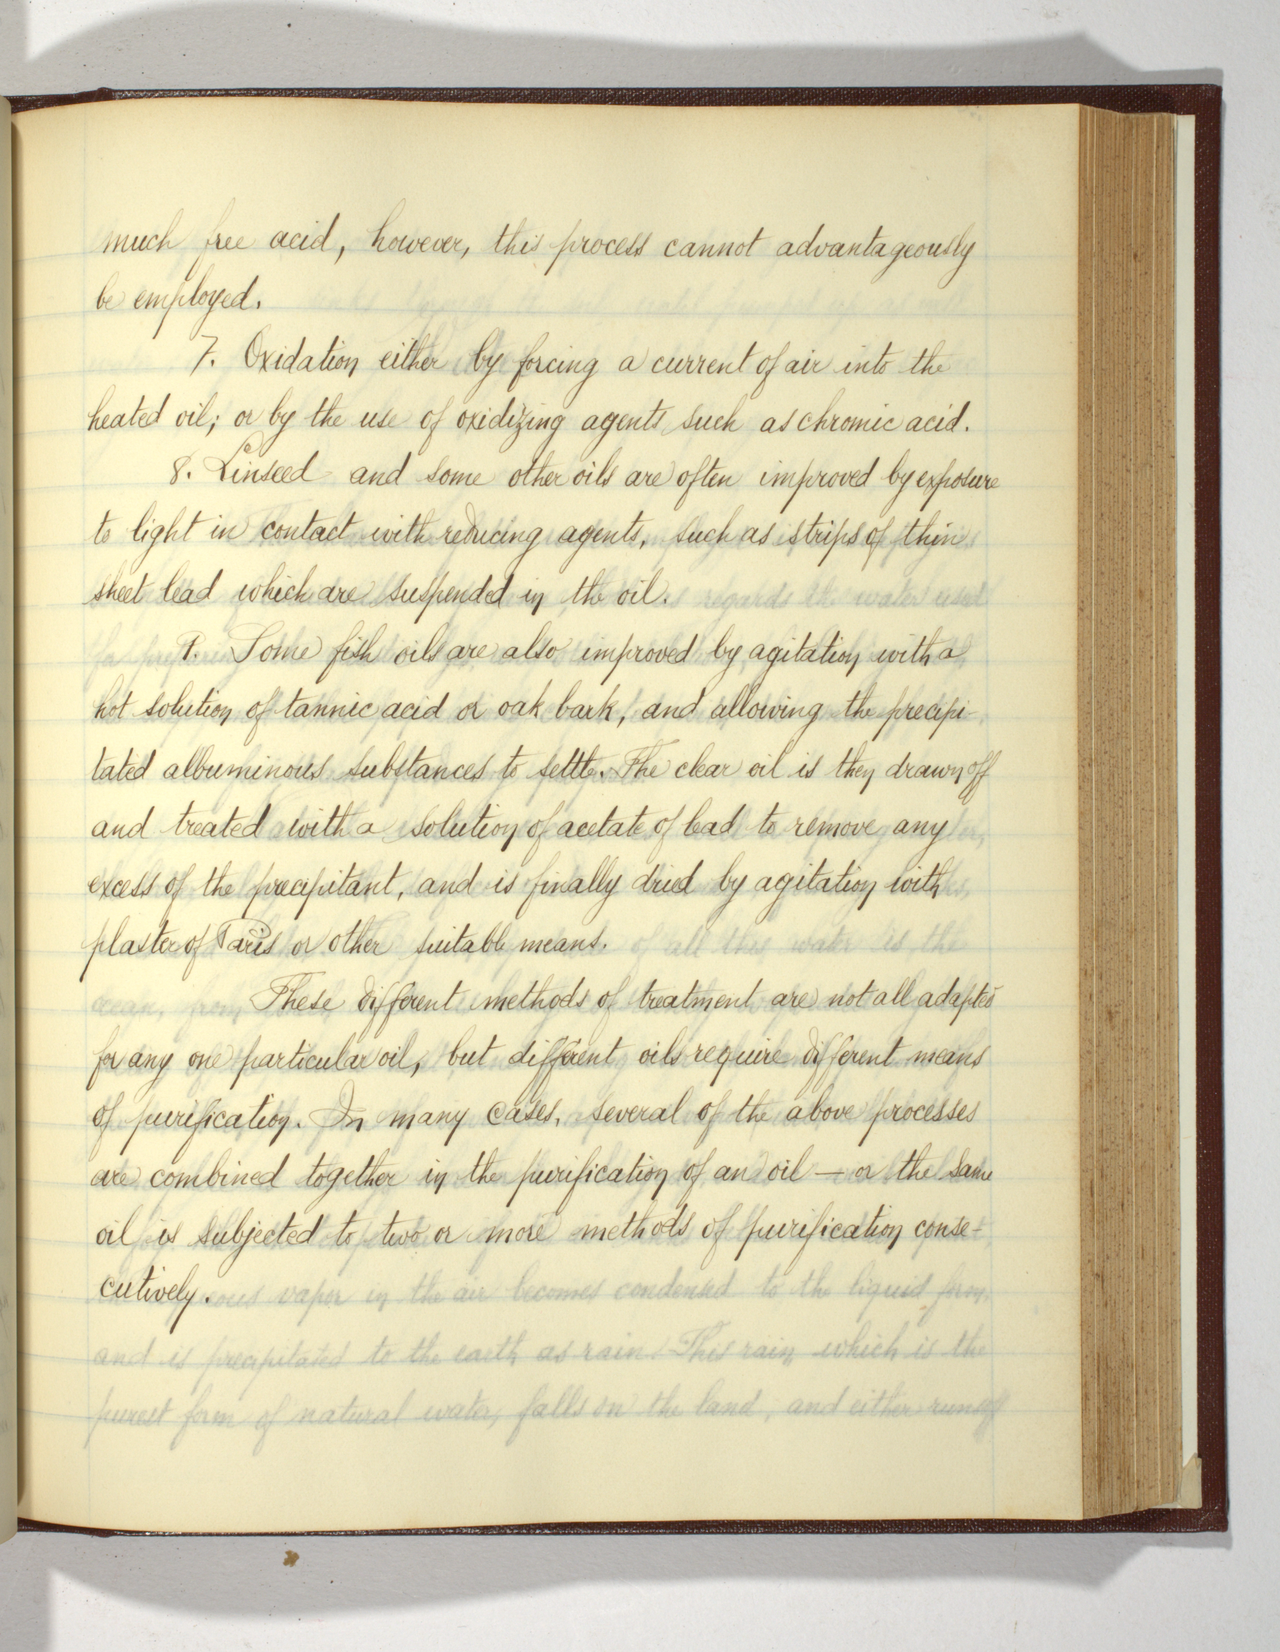 much free acid, however, this process cannot advantageously
be employed.
7. Oxidation either by forcing a current of air into the
heated oil; or by the use of oxidizing agents such as chromic acid.
8. Linseed and some other oils are often improved by exposure
to light in contact with reducing agents, such as strips of thin
sheet lead which are suspended in the oil.
9. Some fish oils are also improved by agitation with a
hot solution of tannic acid or oak bark, and allowing the precipi-
tated albuminous substances to settle. The clear oil is then drawn off
and treated with a solution of acetate of lead to remove any
excess of the precipitant, and is finally dried by agitation with
plaster of Paris or other suitable means.
These different methods of treatment are not all adapted
for any one particular oil, but different oils require different means
of purification. In many cases, several of the above processes
are combined together in the purification of an oil — or the same
oil is subjected to two or more methods of purification conse-
cutively.
vapor in the air becomes condensed to the liquid form,
and is precipitated to the earth as rain. This rain which is the
purest form of natural water, falls on the land, and either runs off